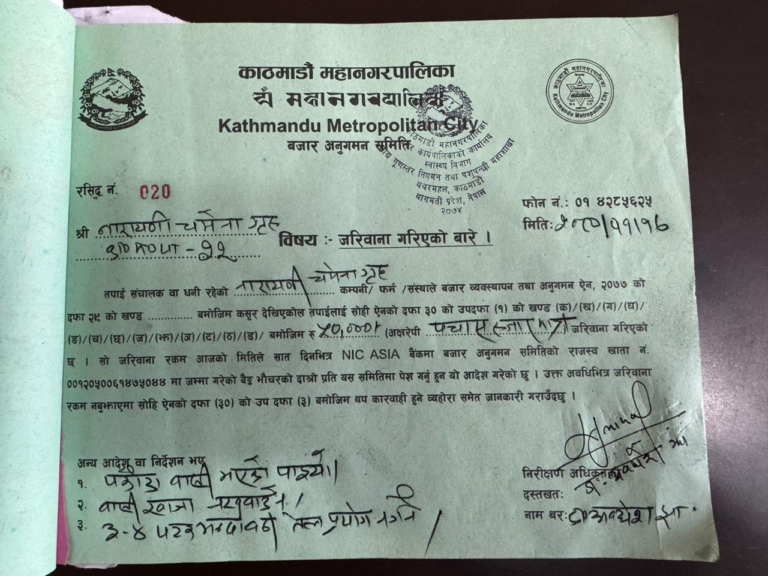 काठमाडौं महानगरपालिका
Kathmandu Metropolitan City
बजार अनुगमन समिति
काठमाडौं महानगरपालिका
नगर कार्यपालिकाको कार्यालय
स्वास्थ्य विभाग
बागमती प्रदेश, नेपाल
२०७४
Kathmandu Metropolitan City
रसिद नं. 020
फोन नं.: ०१ ४२८५६२५
मिति:
श्री नारायणी चमेना गृह
विषय :- जरिवाना गरिएको बारे ।
तपाई संचालक वा धनी रहेको नारायणी चमेना गृह कम्पनी/ फर्म /संस्थाले बजार व्यवस्थापन तथा अनुगमन ऐन, २०७७ को
दफा २९ को खण्ड .............. बमोजिम कसुर देखिएकोल तपाईलाई सोही ऐनको दफा ३० को उपदफा (१) को खण्ड (क)/(ख)/(ग)/(घ)/
(ङ)/(च)/(छ)/(ज)/(झ)/(ञ)/(ट)/(ठ)/(ड)/ बमोजिम रु ५०,०००/ (अक्षरेपी पचास हजार मात्र जरिवाना गरिएको
छ । सो जरिवाना रकम आजको मितिले सात दिनभित्र NIC ASIA बैंकमा बजार अनुगमन समितिको राजस्व खाता नं.
००१२०५००६१४७५०४४ मा जम्मा गरेको बैङ्क भौचरको दाश्रो प्रति यस समितिमा पेश गर्नु हुन यो आदेश गरेको छु । उक्त अवधिभित्र जरिवाना
रकम नबुझाएमा सोहि ऐनको दफा (३०) को उप दफा (३) बमोजिम थप कारवाही हुने व्यहोरा समेत जानकारी गराउँदछु ।
अन्य आदेश वा निर्देशन भए
१.
२. बासी खाजा
३. ३-४ तेल प्रयोग नगर्ने
निरीक्षण अधिकृतको
दस्तखतः
नाम थरः डा अवधेश झा